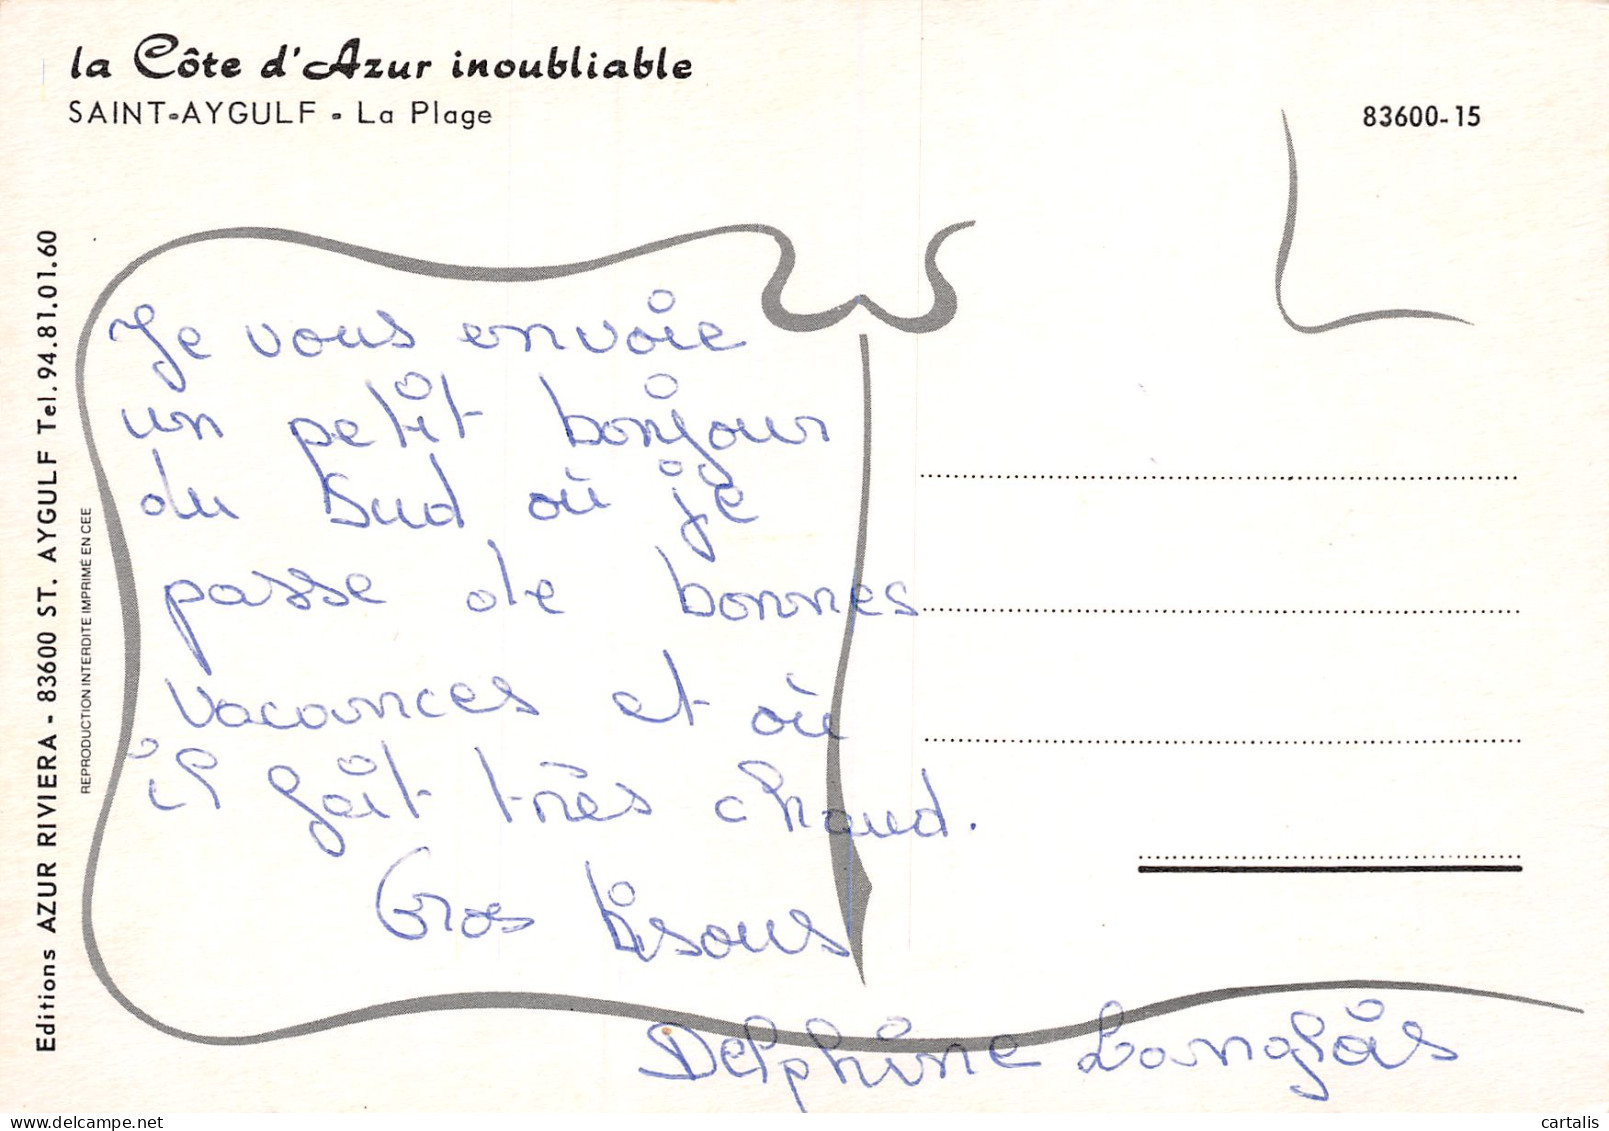 la Côte d'Azur inoubliable
SAINT-AYGULF - La Plage
83600-15
Editions AZUR RIVIERA - 83600 ST. AYGULF Tel. 94.81.01.60
REPRODUCTION INTERDITE IMPRIMÉ EN CEE
Je vous envoie
un petit bonjour
du Sud où je
passe de bonnes
vacances et où
il fait très chaud.
Gros bisous
Delphine Langlais
cartalis
www.delcampe.net